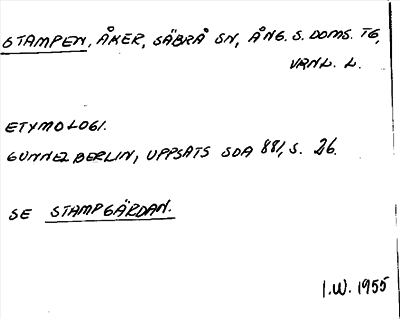 STAMPEN, ÅKER, SÄBRÅ SN, ÅNG. S. DOMS. TG,
VRNL. L.
ETYMOLOGI.
GUNNEL BERLIN, UPPSATS SOA 881, S. 26.
SE STAMPGÄRDAN.
I.W. 1955